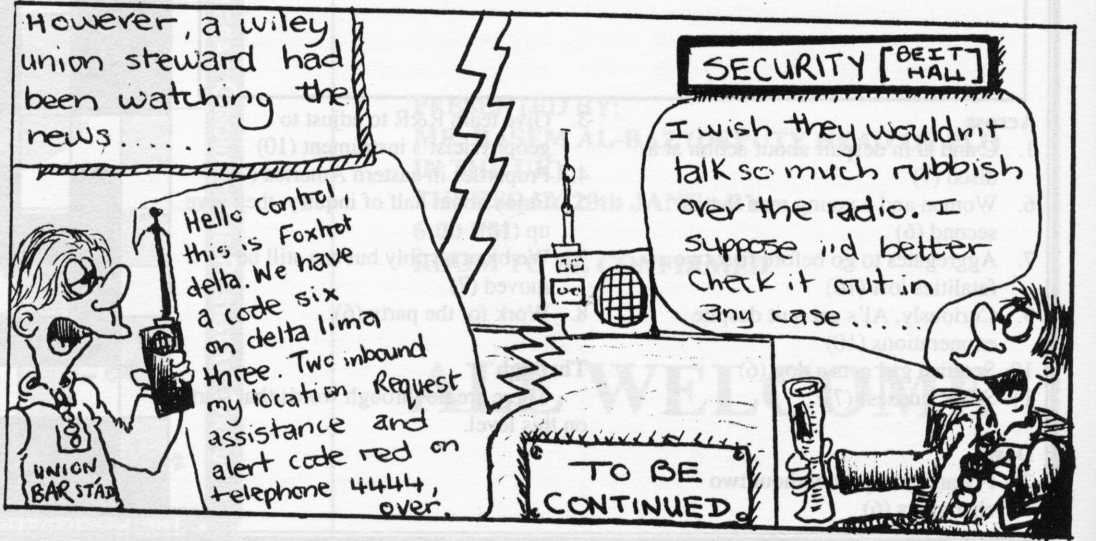 However, a wiley
union steward had
been watching the
news . . . . .
Hello Control
this is Foxtrot
delta. We have
a code six
on delta lima
three. Two inbound
my location. Request
assistance and
alert code red on
telephone 4444,
over.
UNION
BARSTAD
SECURITY [BEIT
HALL]
I wish they wouldn't
talk so much rubbish
over the radio. I
suppose i'd better
check it out in
any case.
TO BE
CONTINUED.